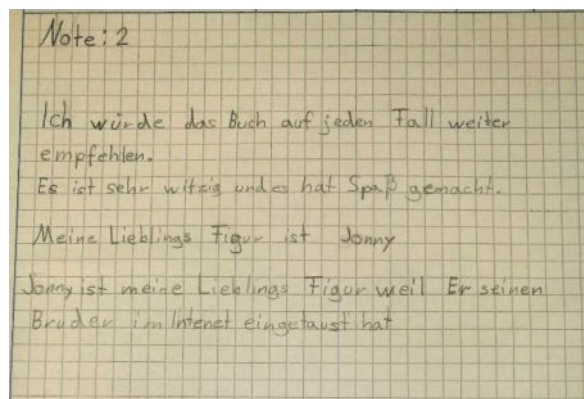 Note: 2
Ich würde das Buch auf jeden Fall weiter
empfehlen.
Es ist sehr witzig und es hat Spaß gemacht.
Meine Lieblings Figur ist Jonny
Jonny ist meine Lieblings Figur weil Er seinen
Bruder im Intenet eingetaust hat